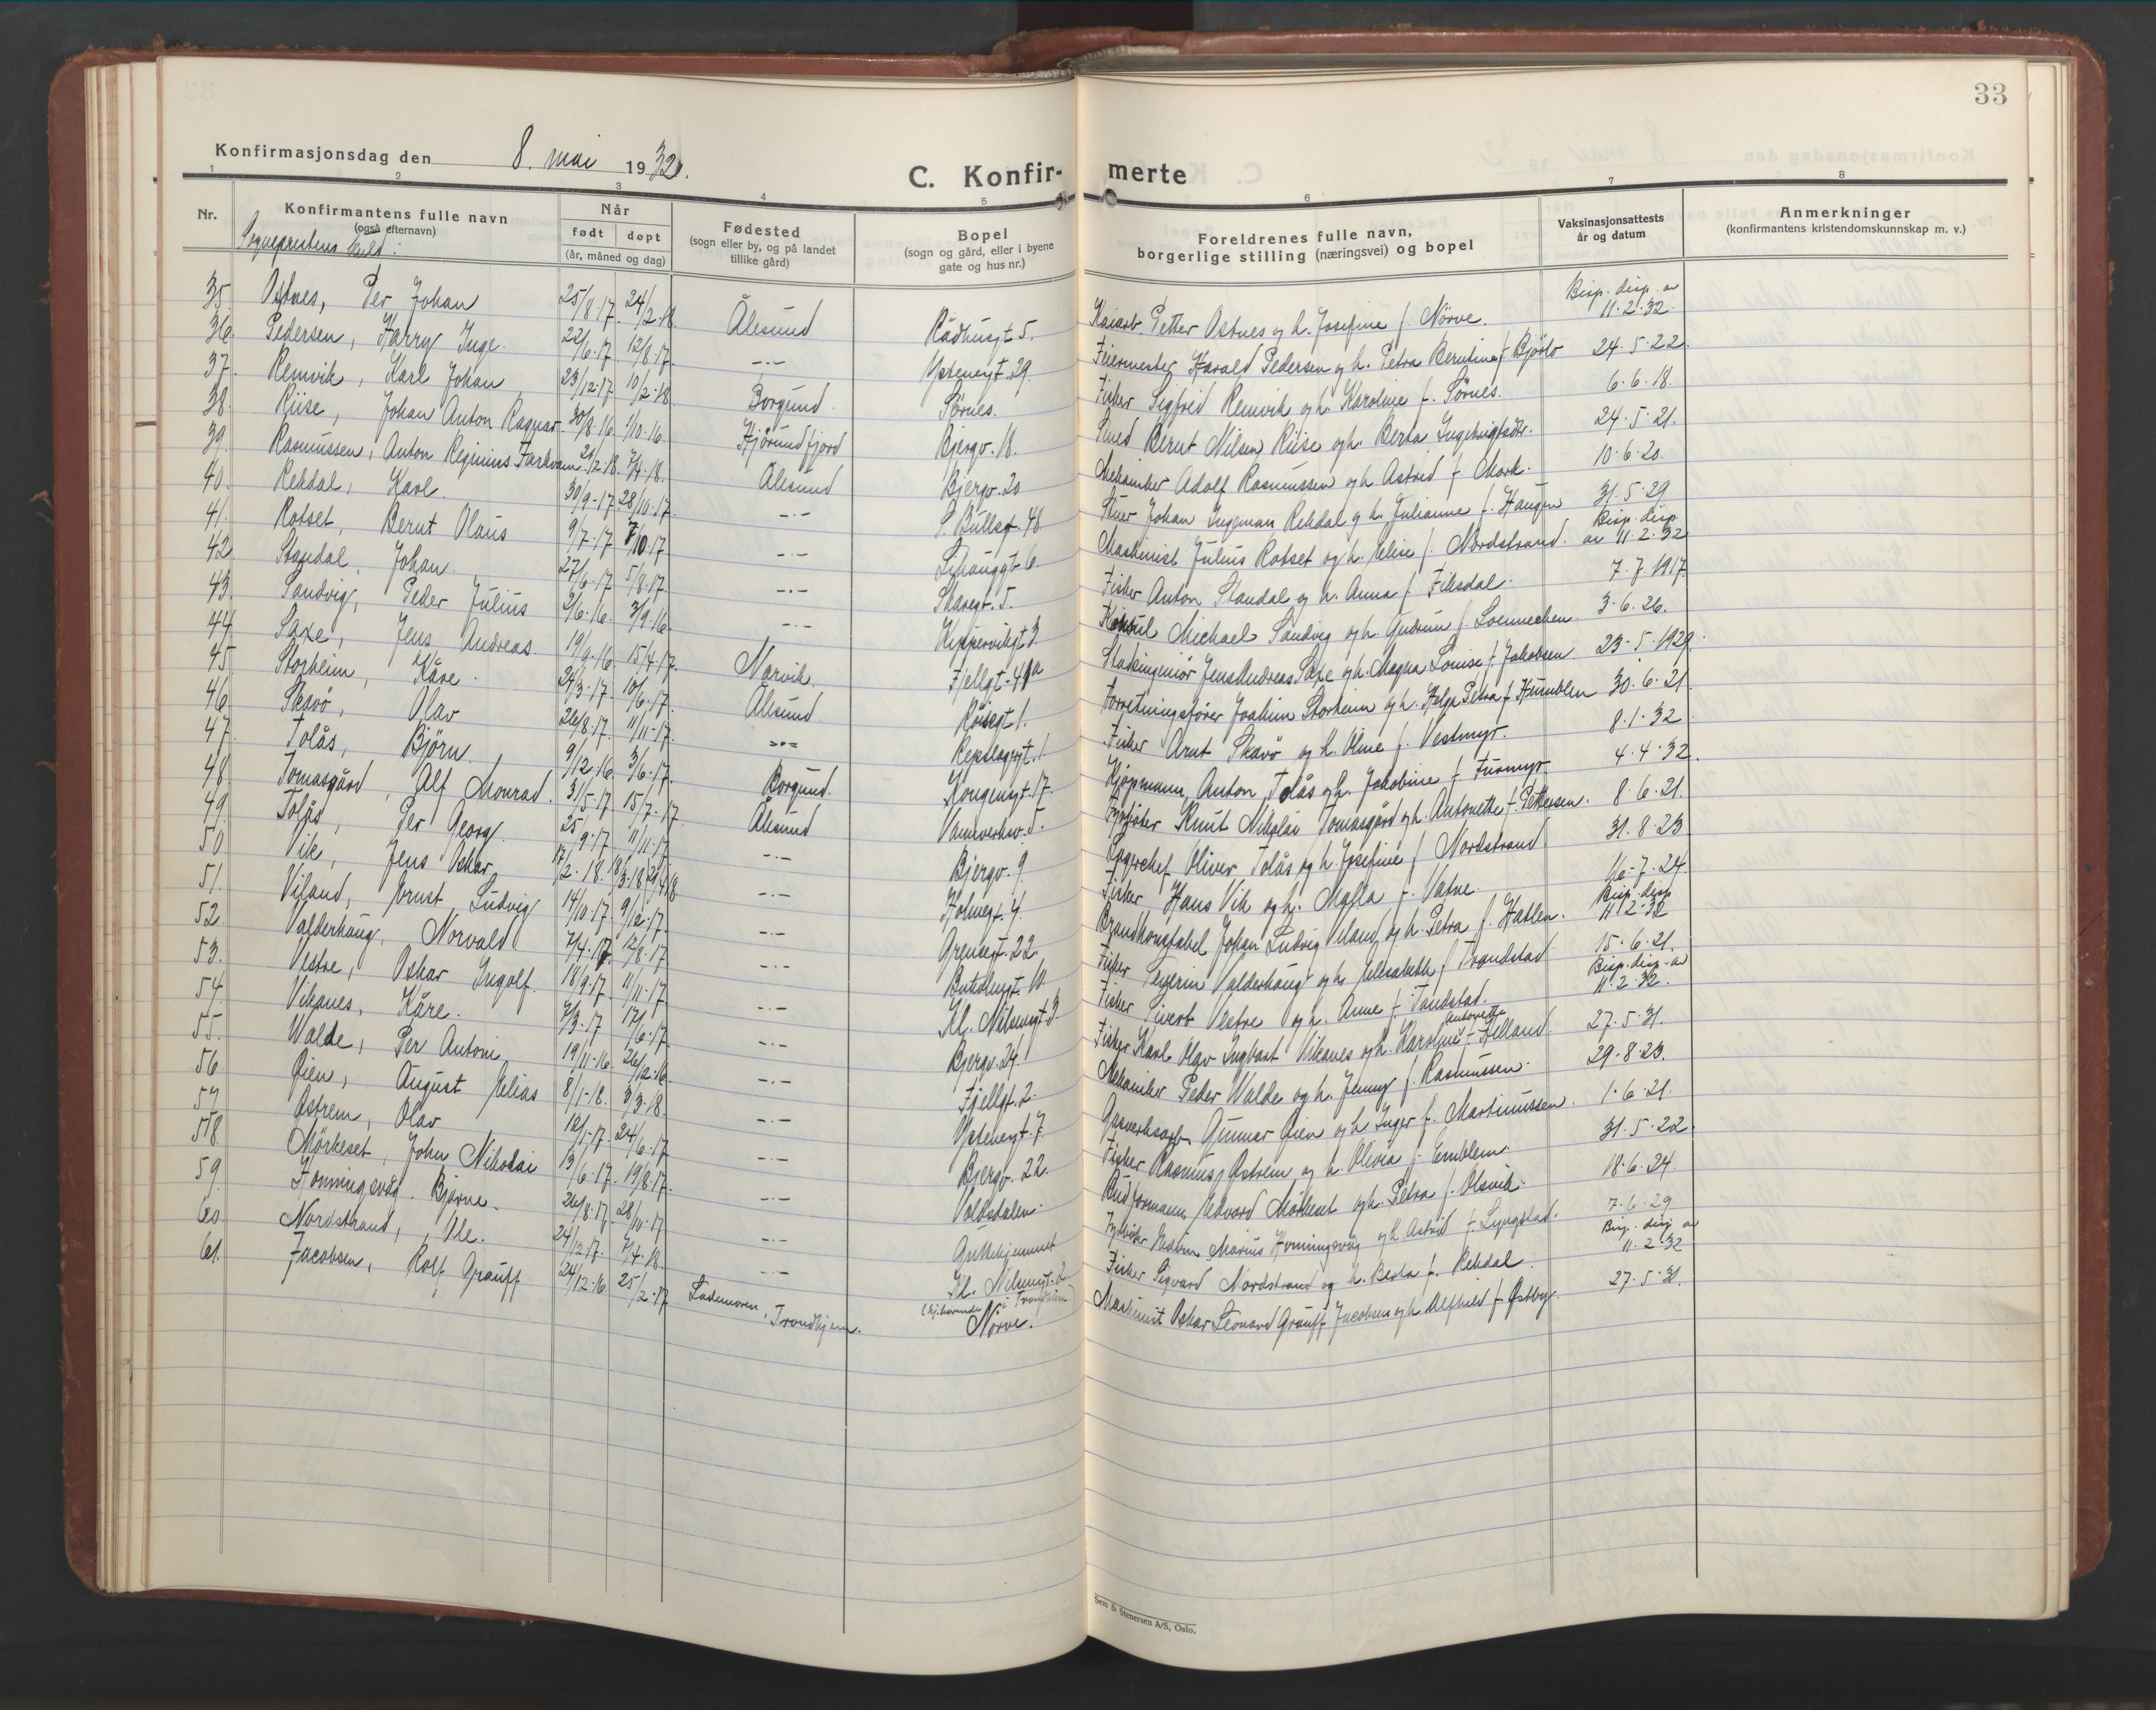 33
Konfirmasjonsdag den 8. mai 1932.
C. Konfirmerte
1 2 3 4 5 6 7 8
Nr.
Konfirmantens fulle navn
(også efternavn)
Når
født døpt
(år, måned og dag)
Fødested
(sogn eller by, og på landet
tillike gård)
Bopel
(sogn og gård, eller i byene
gate og hus nr.)
Foreldrenes fulle navn,
borgerlige stilling (næringsvei) og bopel
Vaksinasjonsattests
år og datum
Anmerkninger
(konfirmantens kristendomskunnskap m. v.)
Sogneprestens
35. Ostnes, Per Johan 25/8.17. 24/2.18. Ålesund Rådhusgt 5. Kaiarb. Petter Ostnes og h. Josefine f. Nörve. Bisp. disp. av 11.2.32.
36. Pedersen, Harry Inge. 22/6.17. 12/8.17. —.— Ystenesgt. 29. Feiermester Harald Pedersen og h. Petra Berntine f. 24.5.22.
37. Remvik, Karl Johan 23/12.17. 10/2.18. Borgund. Sörnes. Fisker Sigfred Remvik og h. Karoline f. Sörnes. 6.6.18.
38. Riise, Johan Anton Ragnar. 30/8.16. 1/10.16. Hjörundfjord Bjergv. 18. Smed Bernt Nilsen Riise og h. Berta 24.5.21.
39. Rasmussen, Anton Reginius 2.18. 7/4.18. Ålesund Bjergv. 20 Mekaniker Adolf Rasmussen og h. Astrid f. Mork. 10.6.20.
40. Rekdal, Karl. 30/9-17. 28/10.17. —.— S. Bullsgt. 48 Johan Ingeman Rekdal og h. Julianne f. Haugen 31.5.29
41. Rotset, Bernt Olaus 9/7.17 7/10.17 —.— 6. Maskinist Julius Rotset og h. Elise f. Nordstrand. Bisp. disp. av 11.2.32
42. Standal, Johan. 27/6.17. 5/8.17. —.— Skaregt. 5. Fisker Anton Standal og h. Anna f. Fiksdal. 7.7.1917.
43. Sandvig, Peder Julius 2/6.16. 3/9.16. —.— Kipperviksgt 3. Konsul Michael Sandvig og h. Gudrun f. Loennechen. 3.6.26.
44. Saxe, Jens Andreas. 19/9.16. 15/4.17. Narvik. Fjellgt. Stadsingeniör Jens Andreas Saxe og h. Magna Louise f. Jakobsen. 23.5.1929.
45. Storheim, Kåre. 24/3.17. 10/6.17. Ålesund. Röisegt 1. Forretningsförer Joakim Storheim og h. Helga Petra f. Humblen 30.6.21.
46. Skavö, Olav 26/8.17. 11/11.17. —.— Repslagergt. 1 Fisker Arnt Skavö og h. Oline f. Vestmyr. 8.1.32.
47. Tolås, Björn. 9/12.16. 3/6.17. Borgund. Kongensgt. 17. Kjøpmann Anton Tolås og h. Jakobine f. Furmyr. 4.4.32.
48. Tomasgård, Alf Monrad. 31/5.17 15/7.17. Ålesund Vannverksv. 5. Fyrböter Knut Nikolai Tomasgård og h. Antonette f. Pettersen. 8.6.21.
49. Tolås, Per Georg. 25/9.17 11/11.17 —.— Bjergv. 9 Lagerchef Oliver Tolås og h. Josefine f. Nordstrand. 31.8.23
50. Vik, Jens Oskar 17/2.18. —.— Kolnegt. 4. Fisker Hans Vik og h. Malla f. Vatne. 16-7.24.
51. Viland, Ernst Ludvig 14/10.17. 9/12.17 —.— Grensegt. 22. Brandkonstabel Johan Ludvig Viland og h. Petra f. Hatlen. Bisp. disp. 11.2.32
52. Valderhaug, Norvald 7/4.17. 12/8.17 —.— 10. Fisker Severin Valderhaug og h. Elisabeth f. 15.6.21.
53. Vestre, Oskar Ingolf. 18/9.17. 11/11.17 —.— Kl. Nilsensgt 3. Fisker Sivert Vestre og h. Anne f. Tandstad. Bisp. disp. av 11.2.32.
54. Vikanes, Kåre. 7/3.17 17/6.17. —.— Bjergv. 24. Fisker Karl Olav Ingbart Vikanes og h. Karoline Antonette f. Helland. 27.5.31.
55. Walde, Per Antoni 19/11-16. 26/12.16. —.— Fjellgt. 2. Mekaniker Peder Walde og h. Jenny f. Rasmussen. 29.8.23.
56. Öien, August Elias 8/1-18. 3/3.18. —.— Ystenesgt. 7. Gasverksarb. Gunnar Öien og h. Inger f. Martinussen. 1.6.21.
57. Östrem, Olav 24/6.17 —.— Bjergv. 22. Fisker Rasmus Östrem og h. Olivia f. Emblem. 31.5.22.
58. Mörkeset, John Nikolai 13/6.17. 19/8.17. —.— Volsdalen. Budformann Edvard Mörkeset og h. Petra f. Olsvik. 18.6.24.
59. Honningsvåg. Bjarne. 26/8.17. 28/10.17 —.— Enkehjemmet Fyrböter Edvin Marius Honningsvåg og h. Astrid f. Lyngstad. 7.6.29
60. Nordstrand, Ole. 24/12.17. 7/4.18. —.— Kl. Nilsensgt. 2 Fisker Sigvard Nordstrand og h. Berta f. Rekdal. Bisp. disp. av 11.2.32
61. Jacobsen, Rolf Grauff 24/12.16. 25/2.17 Lademoen, Trondhjem. (hj.hørende i Trondhjem) Nörve. Maskinist Oskar Leonard Grauff Jacobsen og h. Alfhild f. Östby. 27.5.31.
Sem & Stenersen A/S, Oslo.